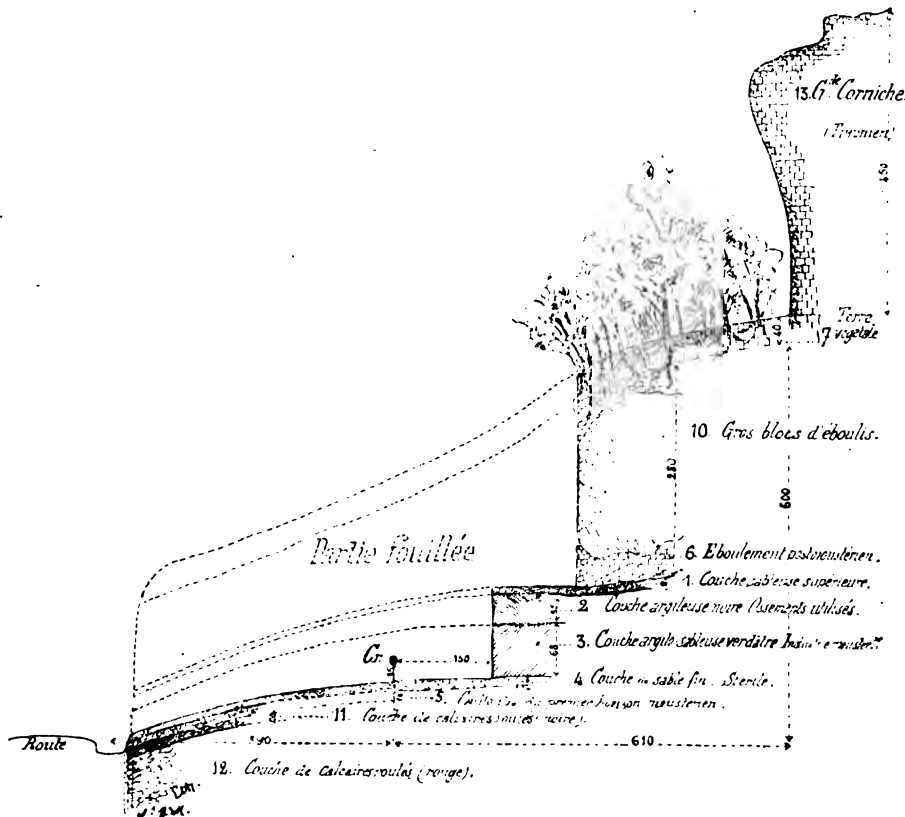 13. Gde Corniche.
450
Terre
végétale
7
40
10. Gros blocs d'éboulis.
280
600
Partie fouillée
6. Eboulement postmoustérien.
1. Couche sableuse supérieure.
2. Couche argileuse noire Ossements utilisés.
3. Couche argilo-sableuse verdâtre
68
Cr.
150
4. Couche de sable fin. Stérile.
5. premier horizon moustérien.
8. 11. Couche de calcaires roulés (noire).
Route
390
610
12. Couche de calcaires roulés (rouge).